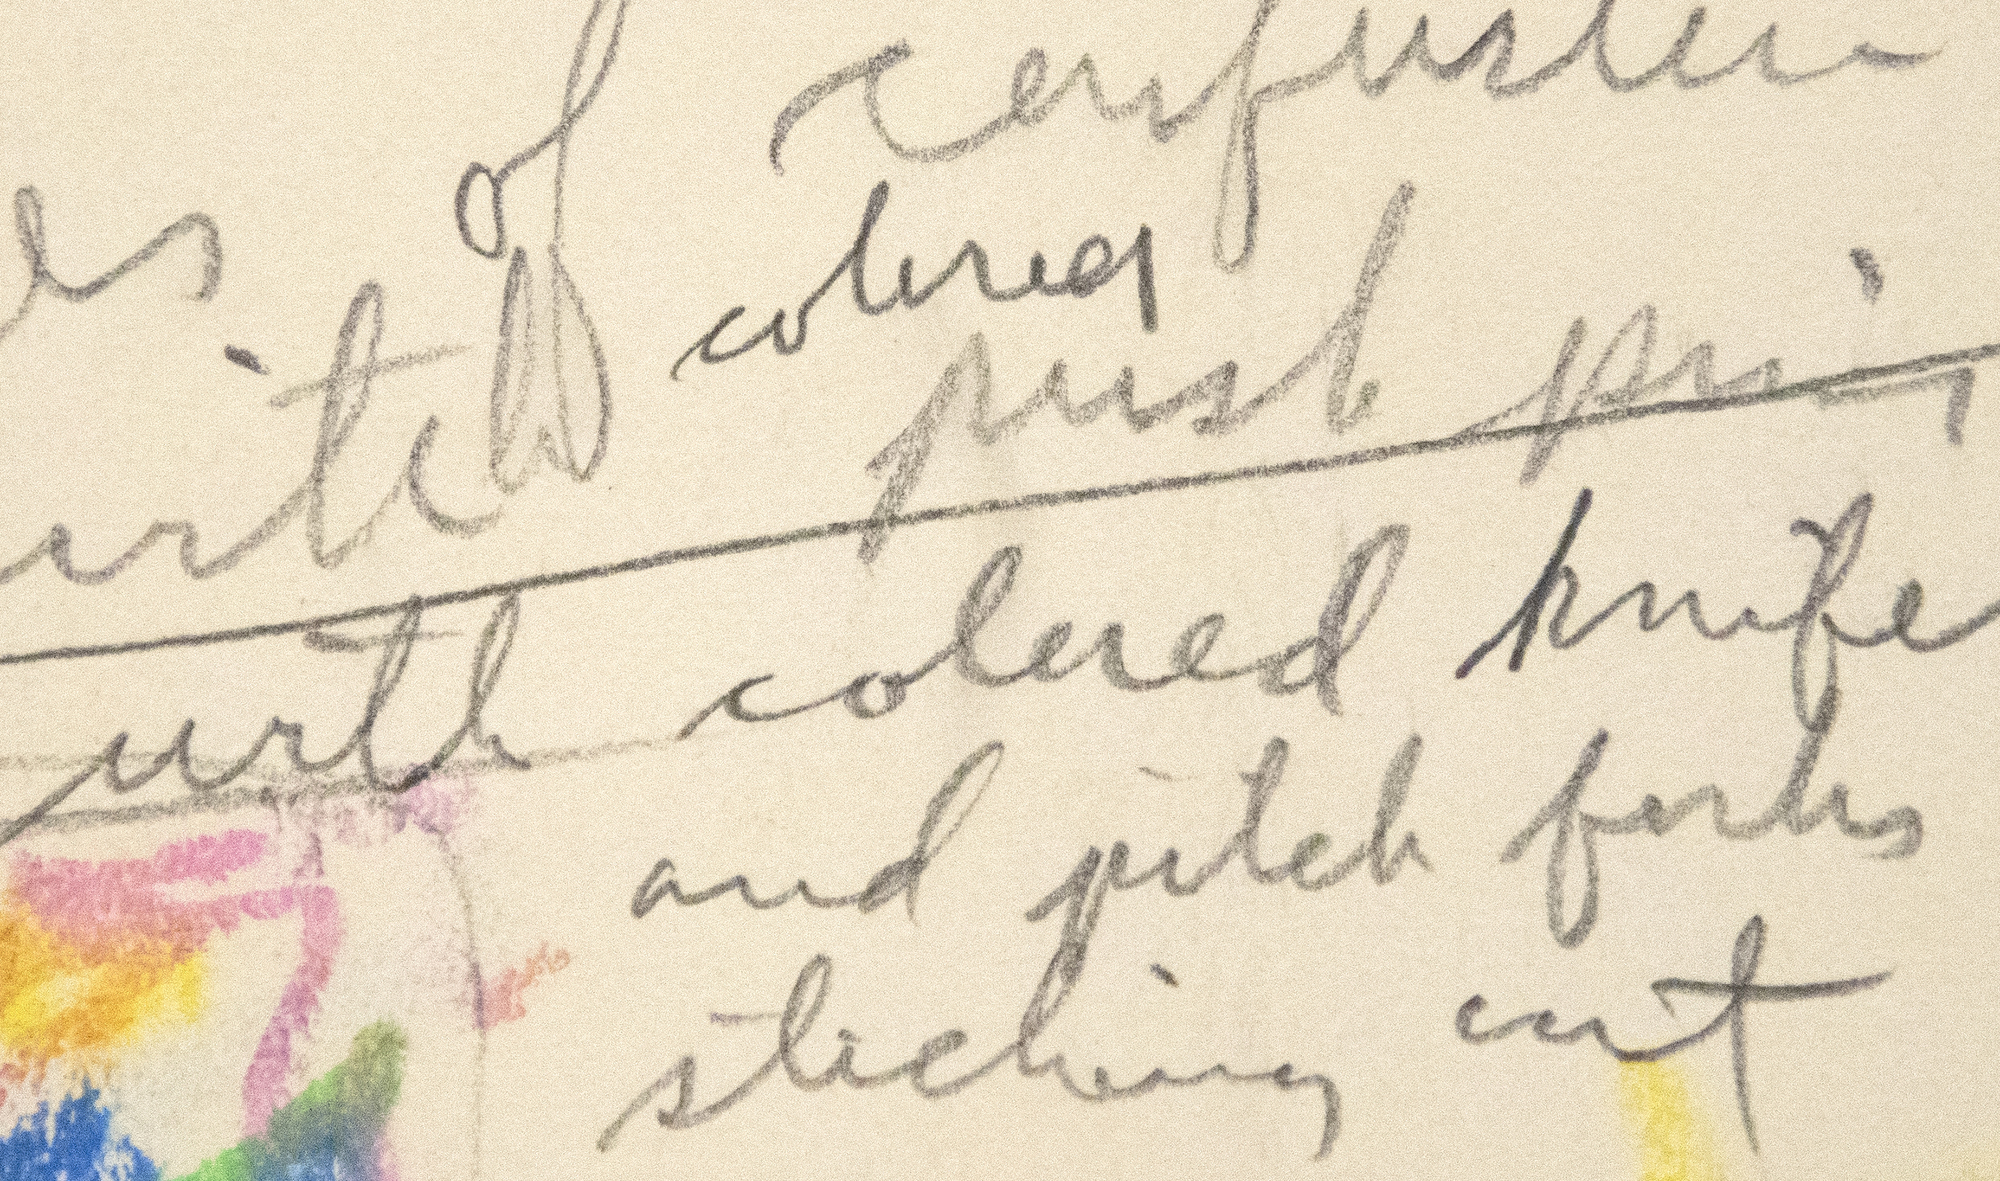 of confusion
es
colored
with push pin
with colored knife
and pitch forks
sticking out